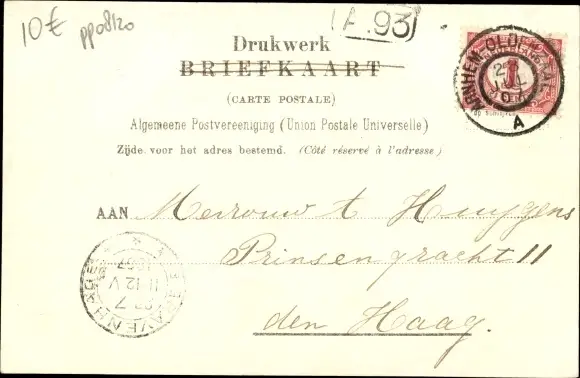 10€ pp08/20
A.93
Drukwerk
BRIEFKAART
(CARTE POSTALE)
Algemeene Postvereeniging (Union Postale Universelle)
Zijde voor het adres bestemd. (Côté réservé à l'adresse)
ARNHEM-OLDENZAAL
A
1
AAN Mevrouw A Huygens
Prinsengracht 11
den Haag.
'S GRAVENHAGE
27 7
11-12 V
1907